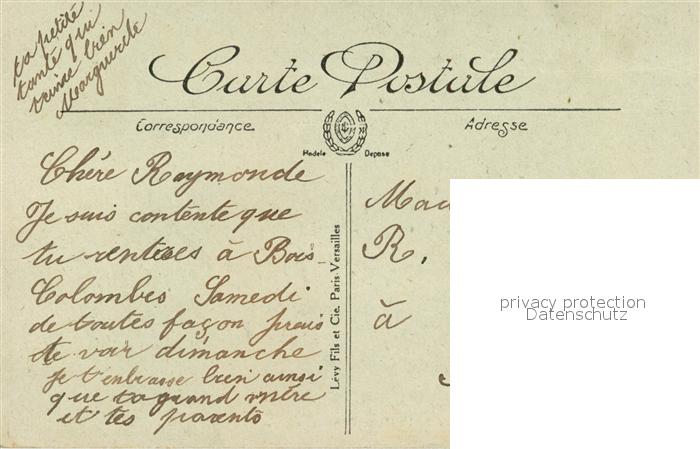 ta petite
tante qui
t'aime bien
Marguerite
Carte Postale
Correspondance
Adresse
Modele Depose
Chère Raymonde
Je suis contente que
tu rentres à Bois-
Colombes Samedi
de toutes façon j'irais
te voir dimanche
Je t'enbrasse bien ainsi
que ta grand mère
et tes parents
Lévy Fils et Cie, Paris-Versailles
R.
à
privacy protection
Datenschutz